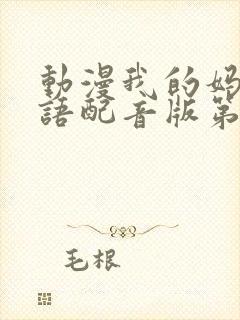 動漫我的媽
語配音版第
毛根